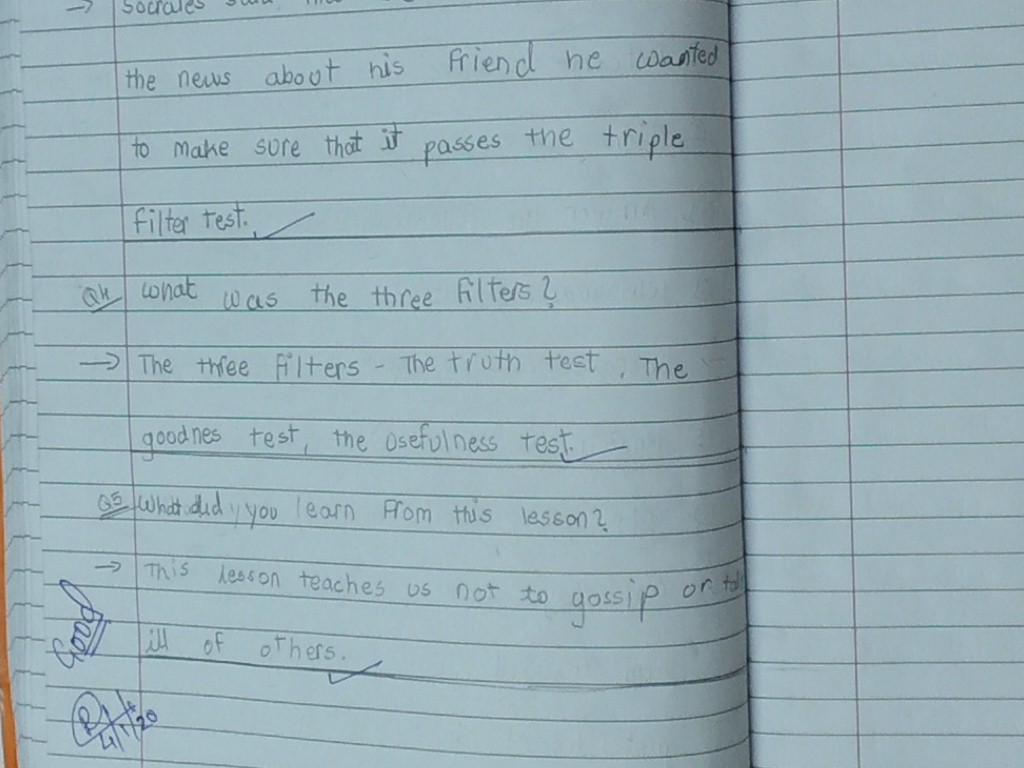 → Socrates said
the news about his friend he wanted
to make sure that it passes the triple
filter test.
Q4 What was the three filters?
→ The three filters - The truth test, The
goodnes test, the usefulness test.
Q5 What did you learn from this lesson?
→ This lesson teaches us not to gossip or
ill of others.
Good